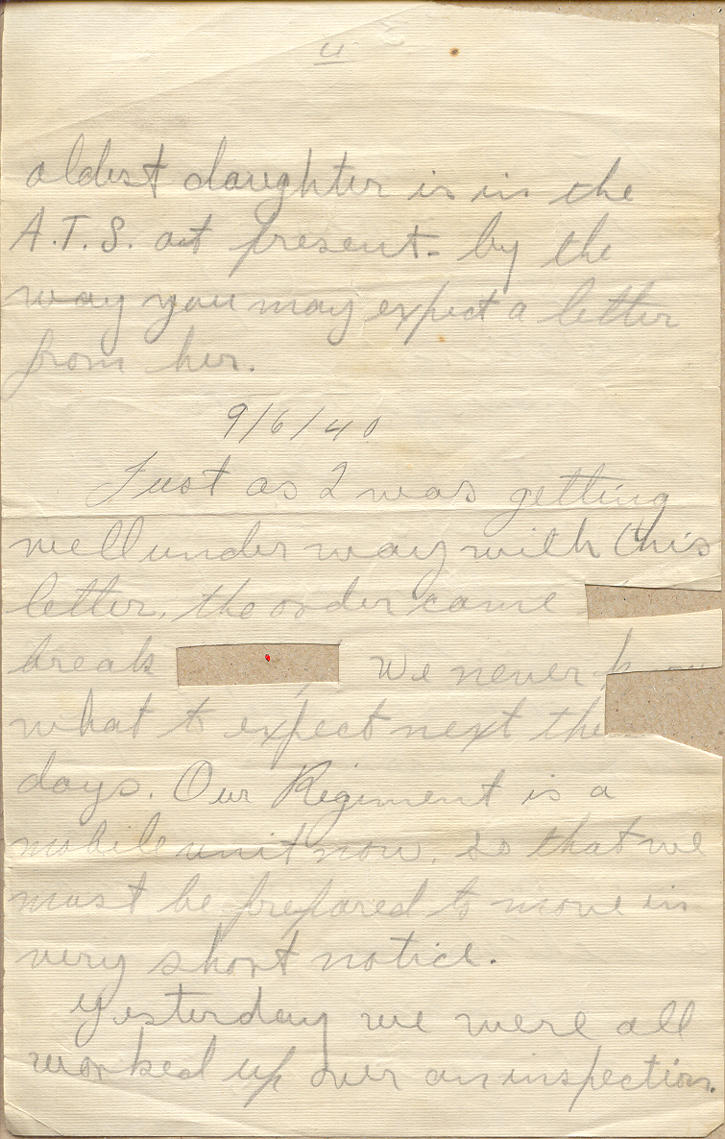 4
oldest daughter is in the
A.T.S. at present. by the
way you may expect a letter
from her.
9/6/40
Just as I was getting
well under way with this
letter, the order came
break We never know
what to expect next the
days. Our Regiment is a
mobile unit now, so that we
must be prepared to move in
very short notice.
Yesterday we were all
worked up over an inspection.